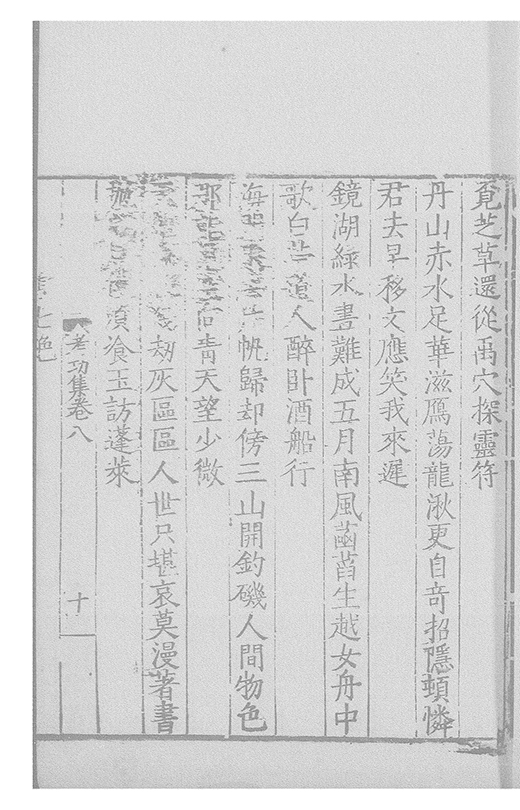 覓芝草還從禹穴探靈符
丹山赤水足華滋鴈蕩龍湫更自奇招隱頓憐
君去早移文應笑我來遲
鏡湖綠水畫難成五月南風菡萏生越女舟中
歌白苧道人醉卧酒船行
海帆歸却傍三山開釣磯人間物色
青天望少微
劫灰區區人世只堪哀莫漫著書
須飡玉訪蓬萊
考功集卷八
十
七絕